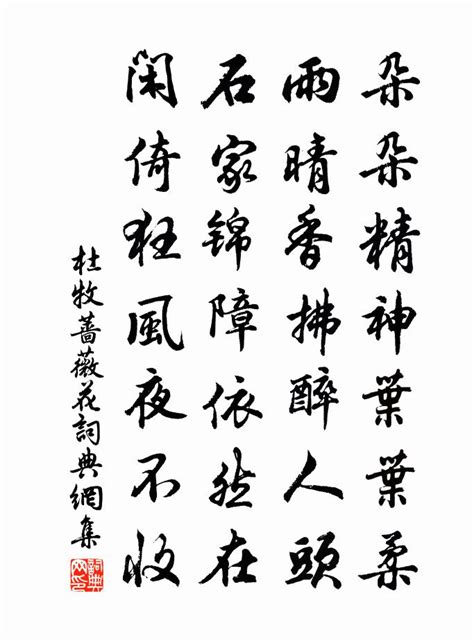 朵朵精神葉葉柔
雨晴香拂醉人頭
石家錦障依然在
閑倚狂風夜不收
杜牧薔薇花詞典網集
詞典網印